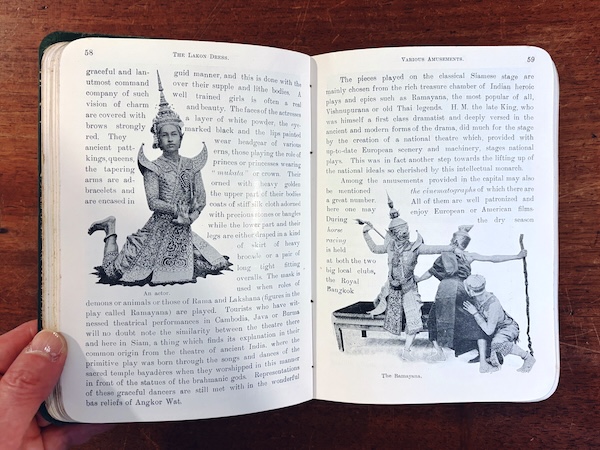 58
THE LAKON DRESS.
graceful and lan- guid manner, and this is done with the
utmost command over their supple and lithe bodies. A
company of such well trained girls is often a real
vision of charm and beauty. The faces of the actresses
are covered with a layer of white powder, the eye-
brows strongly marked black and the lips painted
red. They wear headgear of various
ancient patt- erns, those playing the role of
kings, queens, princes or princesses wearing
the tapering "mukuta" or crown. Their
arms are ad- orned with heavy golden
bracelets and the upper part of their bodies
are encased in coats of stiff silk cloth adorned
with precious stones or bangles
while the lower part and their
legs are either draped in a kind
of skirt of heavy
brocade or a pair of
long tight fitting
overalls. The mask is
An actor.
used when roles of
demons or animals or those of Rama and Lakshana (figures in the
play called Ramayana) are played. Tourists who have wit-
nessed theatrical performances in Cambodia, Java or Burma
will no doubt note the similarity between the theatre there
and here in Siam, a thing which finds its explanation in their
common origin from the theatre of ancient India, where the
primitive play was born through the songs and dances of the
sacred temple bayadères when they worshipped in this manner
in front of the statues of the brahmanic gods. Representations
of these graceful dancers are still met with in the wonderful
bas reliefs of Angkor Wat.
VARIOUS AMUSEMENTS.
59
The pieces played on the classical Siamese stage are
mainly chosen from the rich treasure chamber of Indian heroic
plays and epics such as Ramayana, the most popular of all,
Vishnupurana or old Thai legends. H. M. the late King, who
was himself a first class dramatist and deeply versed in the
ancient and modern forms of the drama, did much for the stage
by the creation of a national theatre which, provided with
up-to-date European scenery and machinery, stages national
plays. This was in fact another step towards the lifting up of
the national ideals so cherished by this intellectual monarch.
Among the amusements provided in the capital may also
be mentioned the cinematographs of which there are
a great number. All of them are well patronized and
here one may enjoy European or American films
During the dry season
horse
racing
is held
at both the two
big local clubs,
the Royal
Bangkok
The Ramayana.